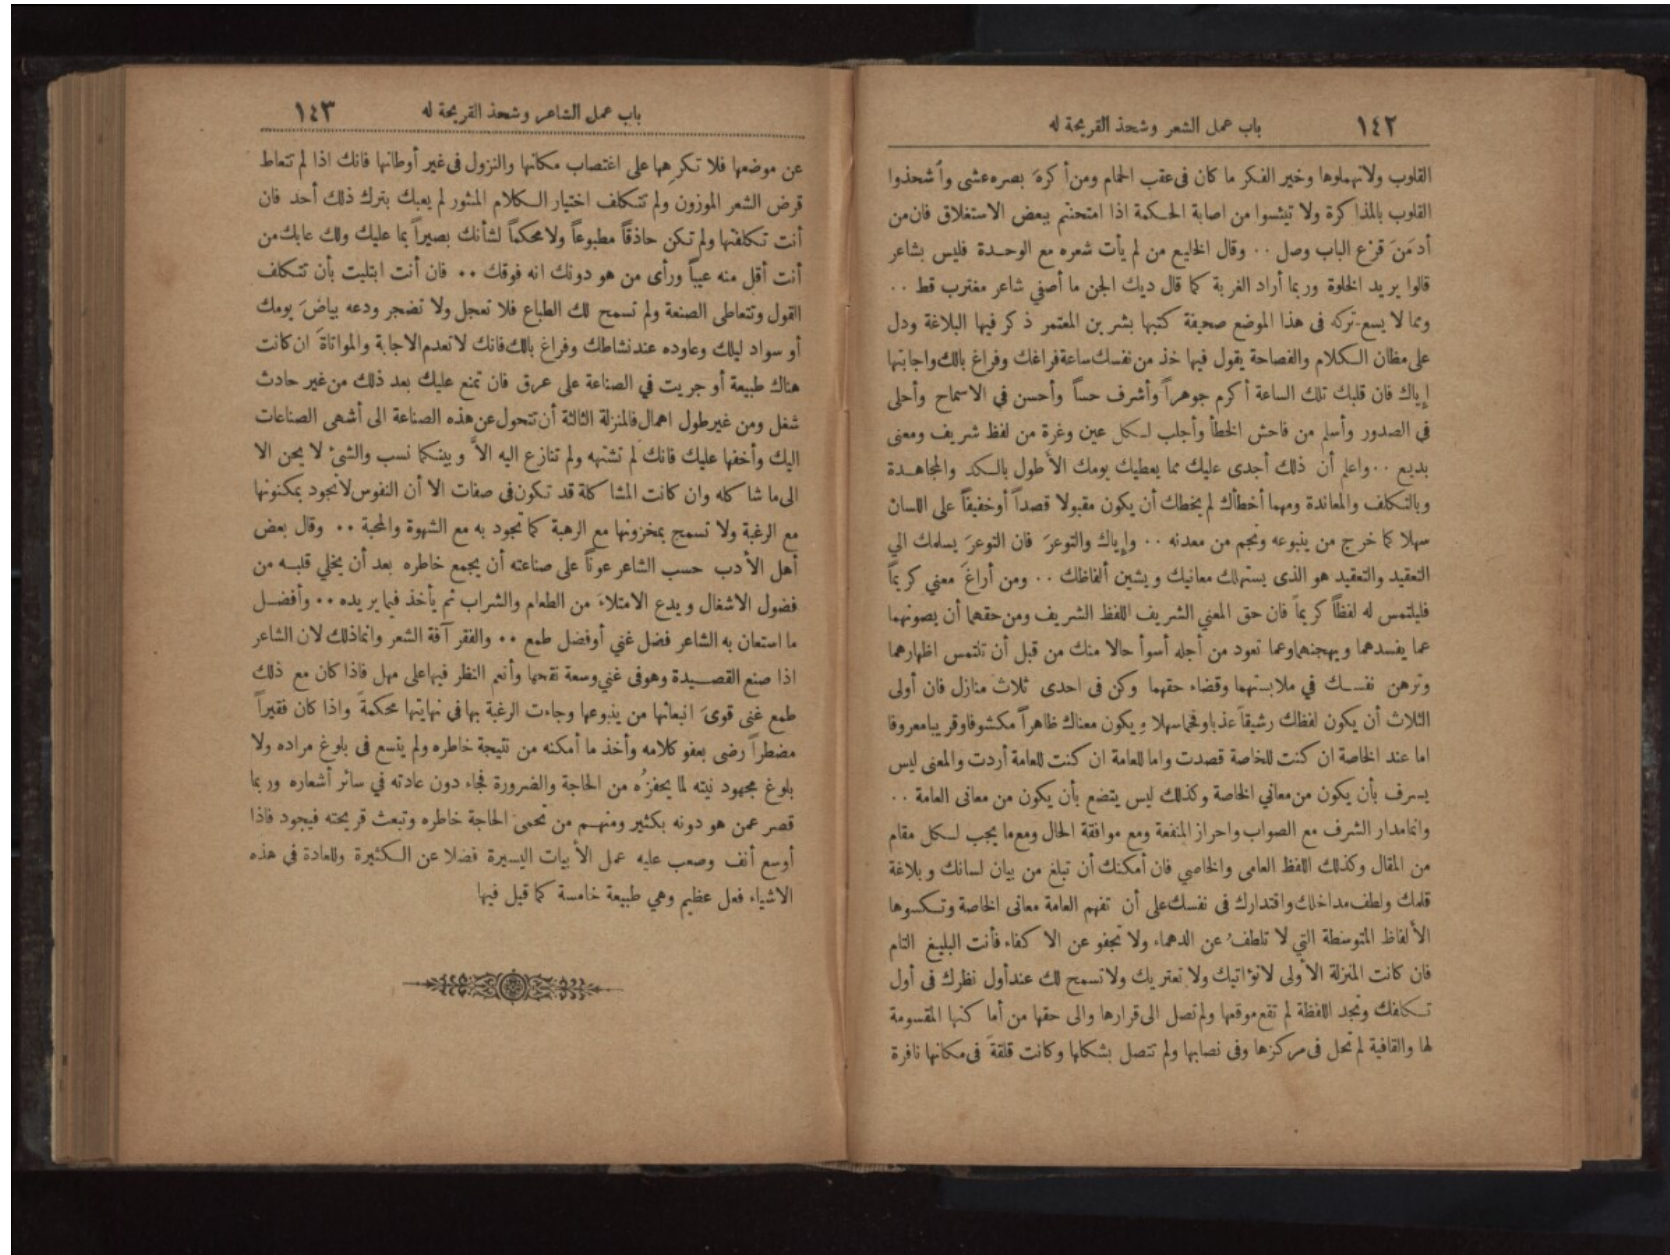 ١٤٢ باب عمل الشعر وشحذ القريحة له
القلوب ولاتهملوها وخير الفكر ما كان فى عقب الحمام ومن أكرهَ بصره عشى وأشحذوا
القلوب بالمذاكرة ولا تيئسوا من اصابة الحكمة اذا امتحنتم ببعض الاستغلاق فان من
أدمَنَ قرْع الباب وصل ٠٠ وقال الخليع من لم يأت شعره مع الوحدة فليس بشاعر
قالوا يريد الخلوة وربما أراد الغربة كما قال ديك الجن ما أصفي شاعر مغترب قط ٠٠
ومما لا يسع تركه فى هذا الموضع صحيفة كتبها بشر بن المعتمر ذكر فيها البلاغة ودل
على مظان الكلام والفصاحة يقول فيها خذ من نفسك ساعة فراغك وفراغ بالك واجابتها
إياك فان قلبك تلك الساعة أكرم جوهراً وأشرف حساً وأحسن في الاسماح وأحلى
فى الصدور وأسلم من فاحش الخطأ وأجلب لكل عين وغرة من لفظ شريف ومعنى
بديع ٠٠ واعلم أن ذلك أجدى عليك مما يعطيك يومك الأطول بالكد والمجاهدة
وبالتكلف والمعاندة ومهما أخطأك لم يخطك أن يكون مقبولا قصداً أوخفيفاً على اللسان
سهلا كما خرج من ينبوعه ونجم من معدنه ٠٠ وإياك والتوعرَ فان التوعرَ يسلمك الي
التعقيد والتعقيد هو الذى يستهلك معانيك ويشين ألفاظك ٠٠ ومن أراغَ معني كريماً
فليلتمس له لفظاً كريماً فان حق المعني الشريف اللفظ الشريف ومن حقهما أن يصونهما
عما يفسدهما ويهجنهما وعما تعود من أجله أسوأ حالا منك من قبل أن تلتمس اظهارهما
وترهن نفسك في ملابستهما وقضاء حقهما وكن فى احدى ثلاث منازل فان أولى
الثلاث أن يكون لفظك رشيقاً عذبا وفخما سهلا ويكون معناك ظاهراً مكشوفا وقريبا معروفا
اما عند الخاصة ان كنت للخاصة قصدت واما للعامة ان كنت للعامة أردت والمعنى ليس
يسرف بأن يكون من معاني الخاصة وكذلك ليس يتضع بأن يكون من معانى العامة ٠٠
وانما مدار الشرف مع الصواب واحراز المنفعة ومع موافقة الحال ومع ما يجب لكل مقام
من المقال وكذلك اللفظ العامى والخاصي فان أمكنك أن تبلغ من بيان لسانك وبلاغة
قلمك ولطف مداخلك واقتدارك فى نفسك على أن تفهم العامة معانى الخاصة وتكسوها
الألفاظ المتوسطة التي لا تلطفُ عن الدهماء ولا تجفو عن الاكفاء فأنت البليغ التام
فان كانت المنزلة الأولى لاتؤاتيك ولا تعتريك ولا تسمح لك عند أول نظرك فى أول
تكلفك وتجد اللفظة لم تقع موقعها ولم تصل الى قرارها والى حقها من أماكنها المقسومة
لها والقافية لم تحل فى مركزها وفى نصابها ولم تتصل بشكلها وكانت قلقةً فى مكانها نافرة
باب عمل الشاعر وشحذ القريحة له ١٤٣
عن موضعها فلا تكرِهها على اغتصاب مكانها والنزول فى غير أوطانها فانك اذا لم تتعاط
قرض الشعر الموزون ولم تتكلف اختيار الكلام المنثور لم يعبك بترك ذلك أحد فان
أنت تكلفتها ولم تكن حاذقاً مطبوعاً ولا محكماً لشأنك بصيراً بما عليك ولك عابك من
أنت أقل منه عيباً ورأى من هو دونك انه فوقك ٠٠ فان أنت ابتليت بأن تتكلف
القول وتتعاطى الصنعة ولم تسمح لك الطباع فلا تعجل ولا تضجر ودعه بياضَ يومك
أو سواد ليلك وعاوده عند نشاطك وفراغ بالك فانك لا تعدم الاجابة والمواتاةَ ان كانت
هناك طبيعة أو جريت في الصناعة على عرق فان تمنع عليك بعد ذلك من غير حادث
شغل ومن غير طول اهمال فالمنزلة الثالثة أن تتحول عن هذه الصناعة الى أشهى الصناعات
اليك وأخفها عليك فانك لم تشتهه ولم تنازع اليه الاَّ وبينكما نسب والشئ لا يحن الا
الى ما شاكله وان كانت المشاكلة قد تكون فى صفات الا أن النفوس لا تجود بمكنونها
مع الرغبة ولا تسمح بمخزونها مع الرهبة كما تجود به مع الشهوة والمحبة ٠٠ وقال بعض
أهل الأدب حسب الشاعر عوناً على صناعته أن يجمع خاطره بعد أن يخلي قلبه من
فضول الاشغال ويدع الامتلاءَ من الطعام والشراب ثم يأخذ فيما يريده ٠٠ وأفضل
ما استعان به الشاعر فضل غني أو فضل طمع ٠٠ والفقر آفة الشعر وانما ذلك لان الشاعر
اذا صنع القصيدة وهو فى غني وسعة نقحها وأنعم النظر فيها على مهل فاذا كان مع ذلك
طمع غنى قوىَ انبعاثها من ينبوعها وجاءت الرغبة بها فى نهايتها محكمةً واذا كان فقيراً
مضطراً رضى بعفو كلامه وأخذ ما أمكنه من نتيجة خاطره ولم يتسع فى بلوغ مراده ولا
بلوغ مجهود نيته لما يحفزُه من الحاجة والضرورة فجاء دون عادته في سائر أشعاره وربما
قصر عمن هو دونه بكثير ومنهم من تحمى الحاجة خاطره وتبعث قريحته فيجود فاذا
أوسع أنف وصعب عليه عمل الأبيات اليسيرة فضلا عن الكثيرة وللعادة في هذه
الاشياء فعل عظيم وهي طبيعة خامسة كما قيل فيها